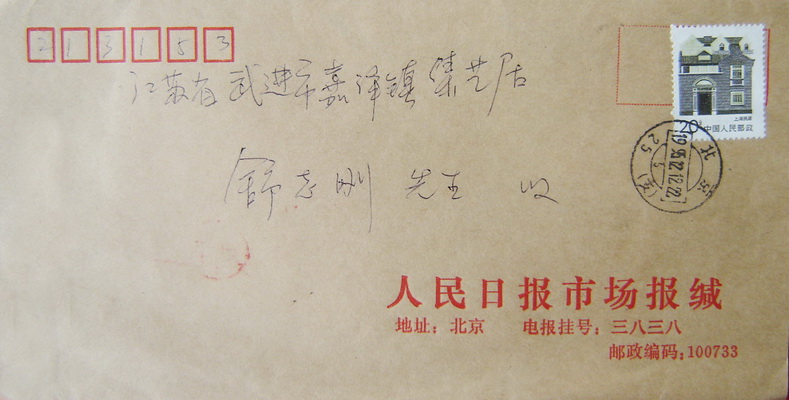 213153
江苏省武进市嘉泽镇集艺居
舒志刚 先生 收
上海民居
20分 中国人民邮政
北京
1995.12.12.22
25
人民日报市场报缄
地址：北京 电报挂号：三八三八
邮政编码：100733